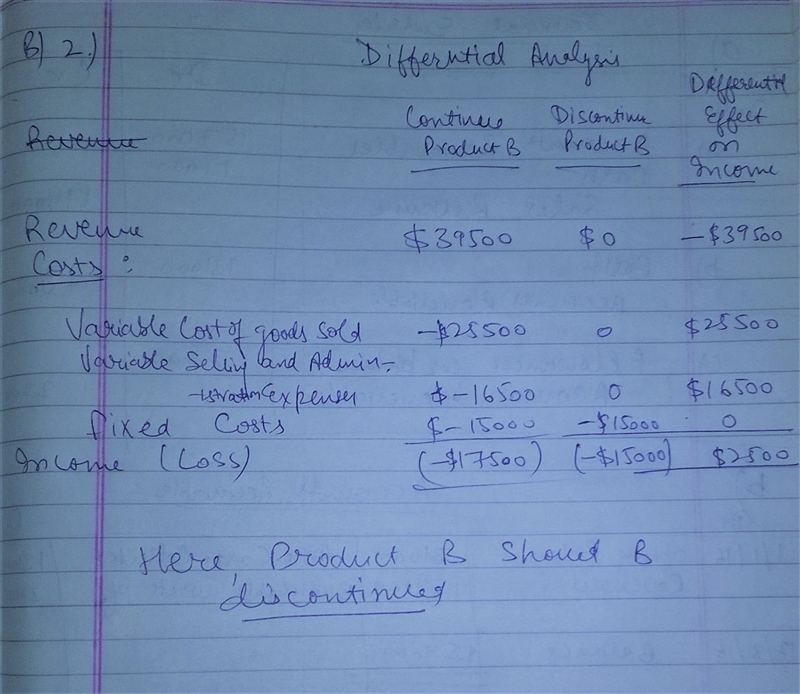 B) 2.) Differntial Analysis
Continue Product B Discontinue Product B Differential Effect on Income
Revenue
Revenue $39500 $0 -$39500
Costs :
Variable Cost of goods sold -$25500 0 $25500
Variable Selling and Admin-
-istration expenses $-16500 0 $16500
fixed Costs $-15000 -$15000 0
Income (Loss) (-$17500) (-$15000) $2500
Here, Product B Should B
discontinued